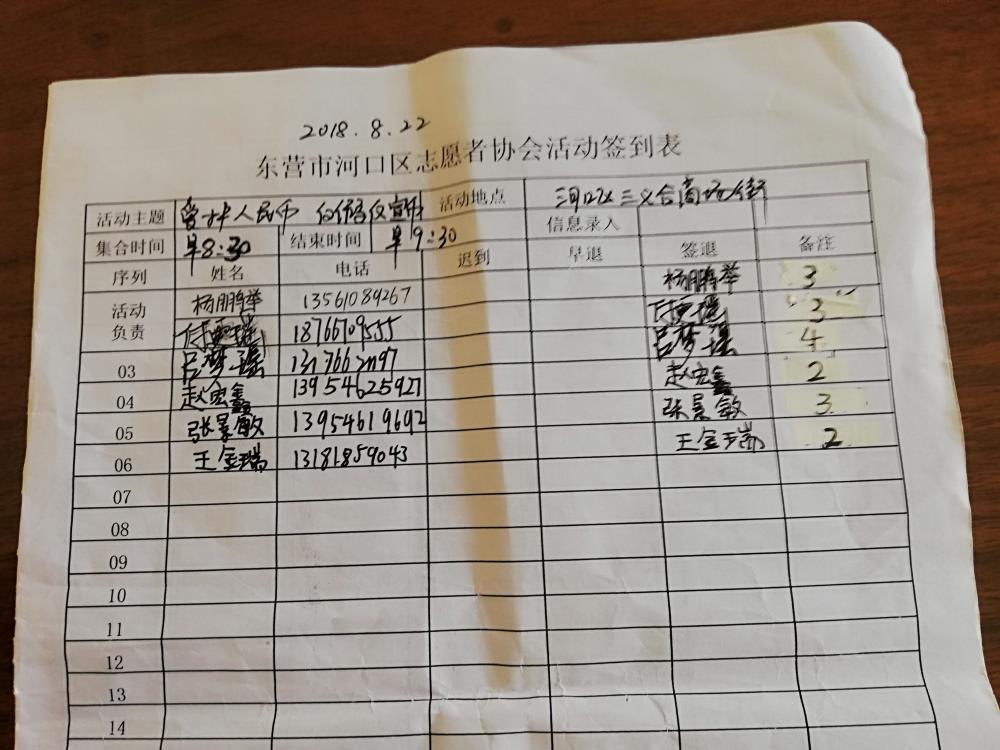 2018.8.22
东营市河口区志愿者协会活动签到表
活动主题 爱护人民币 宣传 活动地点 河口区三义合商场街
集合时间 早8:30 结束时间 早9:30 信息录入
序列 姓名 电话 迟到 早退 签退 备注
活动 杨鹏举 13561089267 杨鹏举 3
负责 18766709535 3
03 吕梦瑶 吕梦瑶 4
04 赵宏鑫 13954625927 赵宏鑫 2
05 张景敏 13954619692 张景敏 3
06 王金瑞 13181859043 王金瑞 2
07
08
09
10
11
12
13
14